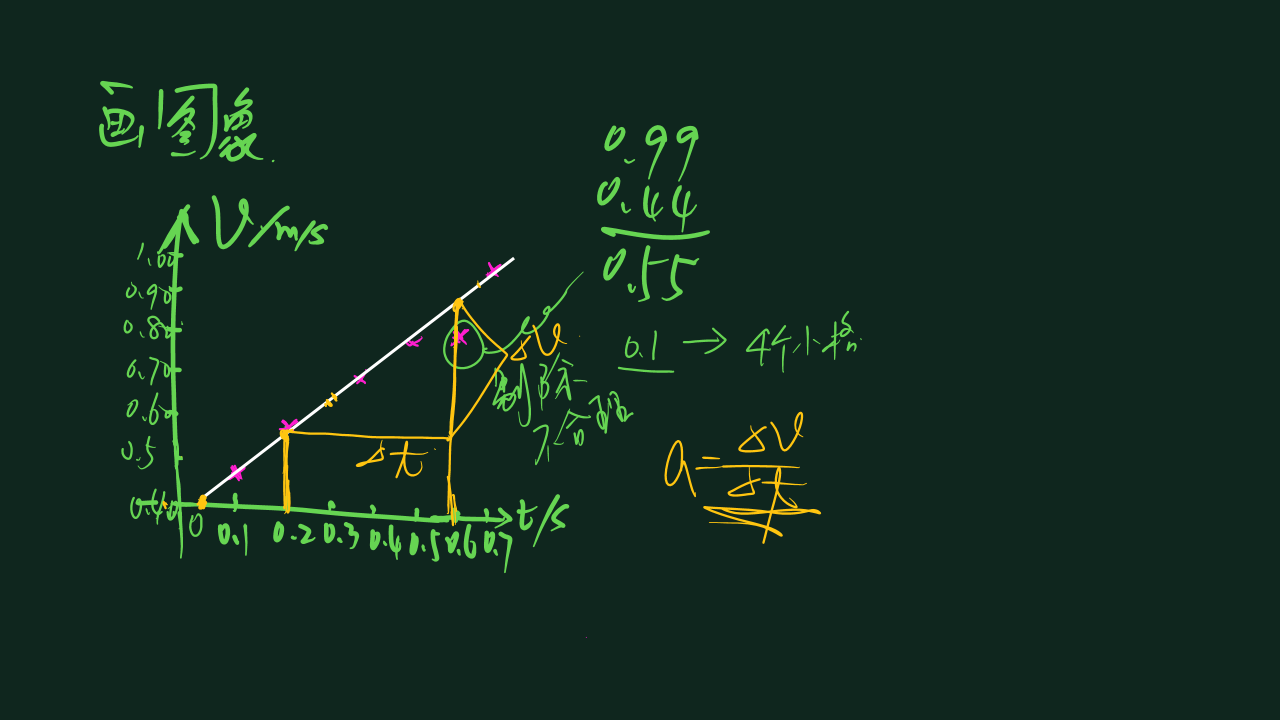 画图象
V/m/s
1.00
0.90
0.80
0.70
0.60
0.5
0.40
0 0.1 0.2 0.3 0.4 0.5 0.6 0.7
t/s
Δt
ΔV
剔除
不合理
0.99
0.44
0.55
0.1 → 4个小格
a=ΔV/Δt